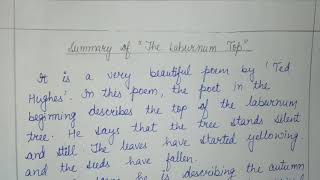 Summary of "The Laburnum Top"
It is a very beautiful poem by 'Ted
Hughes'. In this poem, the poet in the
beginning describes the top of the laburnum
tree. He says that the tree stands silent
and still. The leaves have started yellowing
and the seeds have fallen.
he is describing the autumn